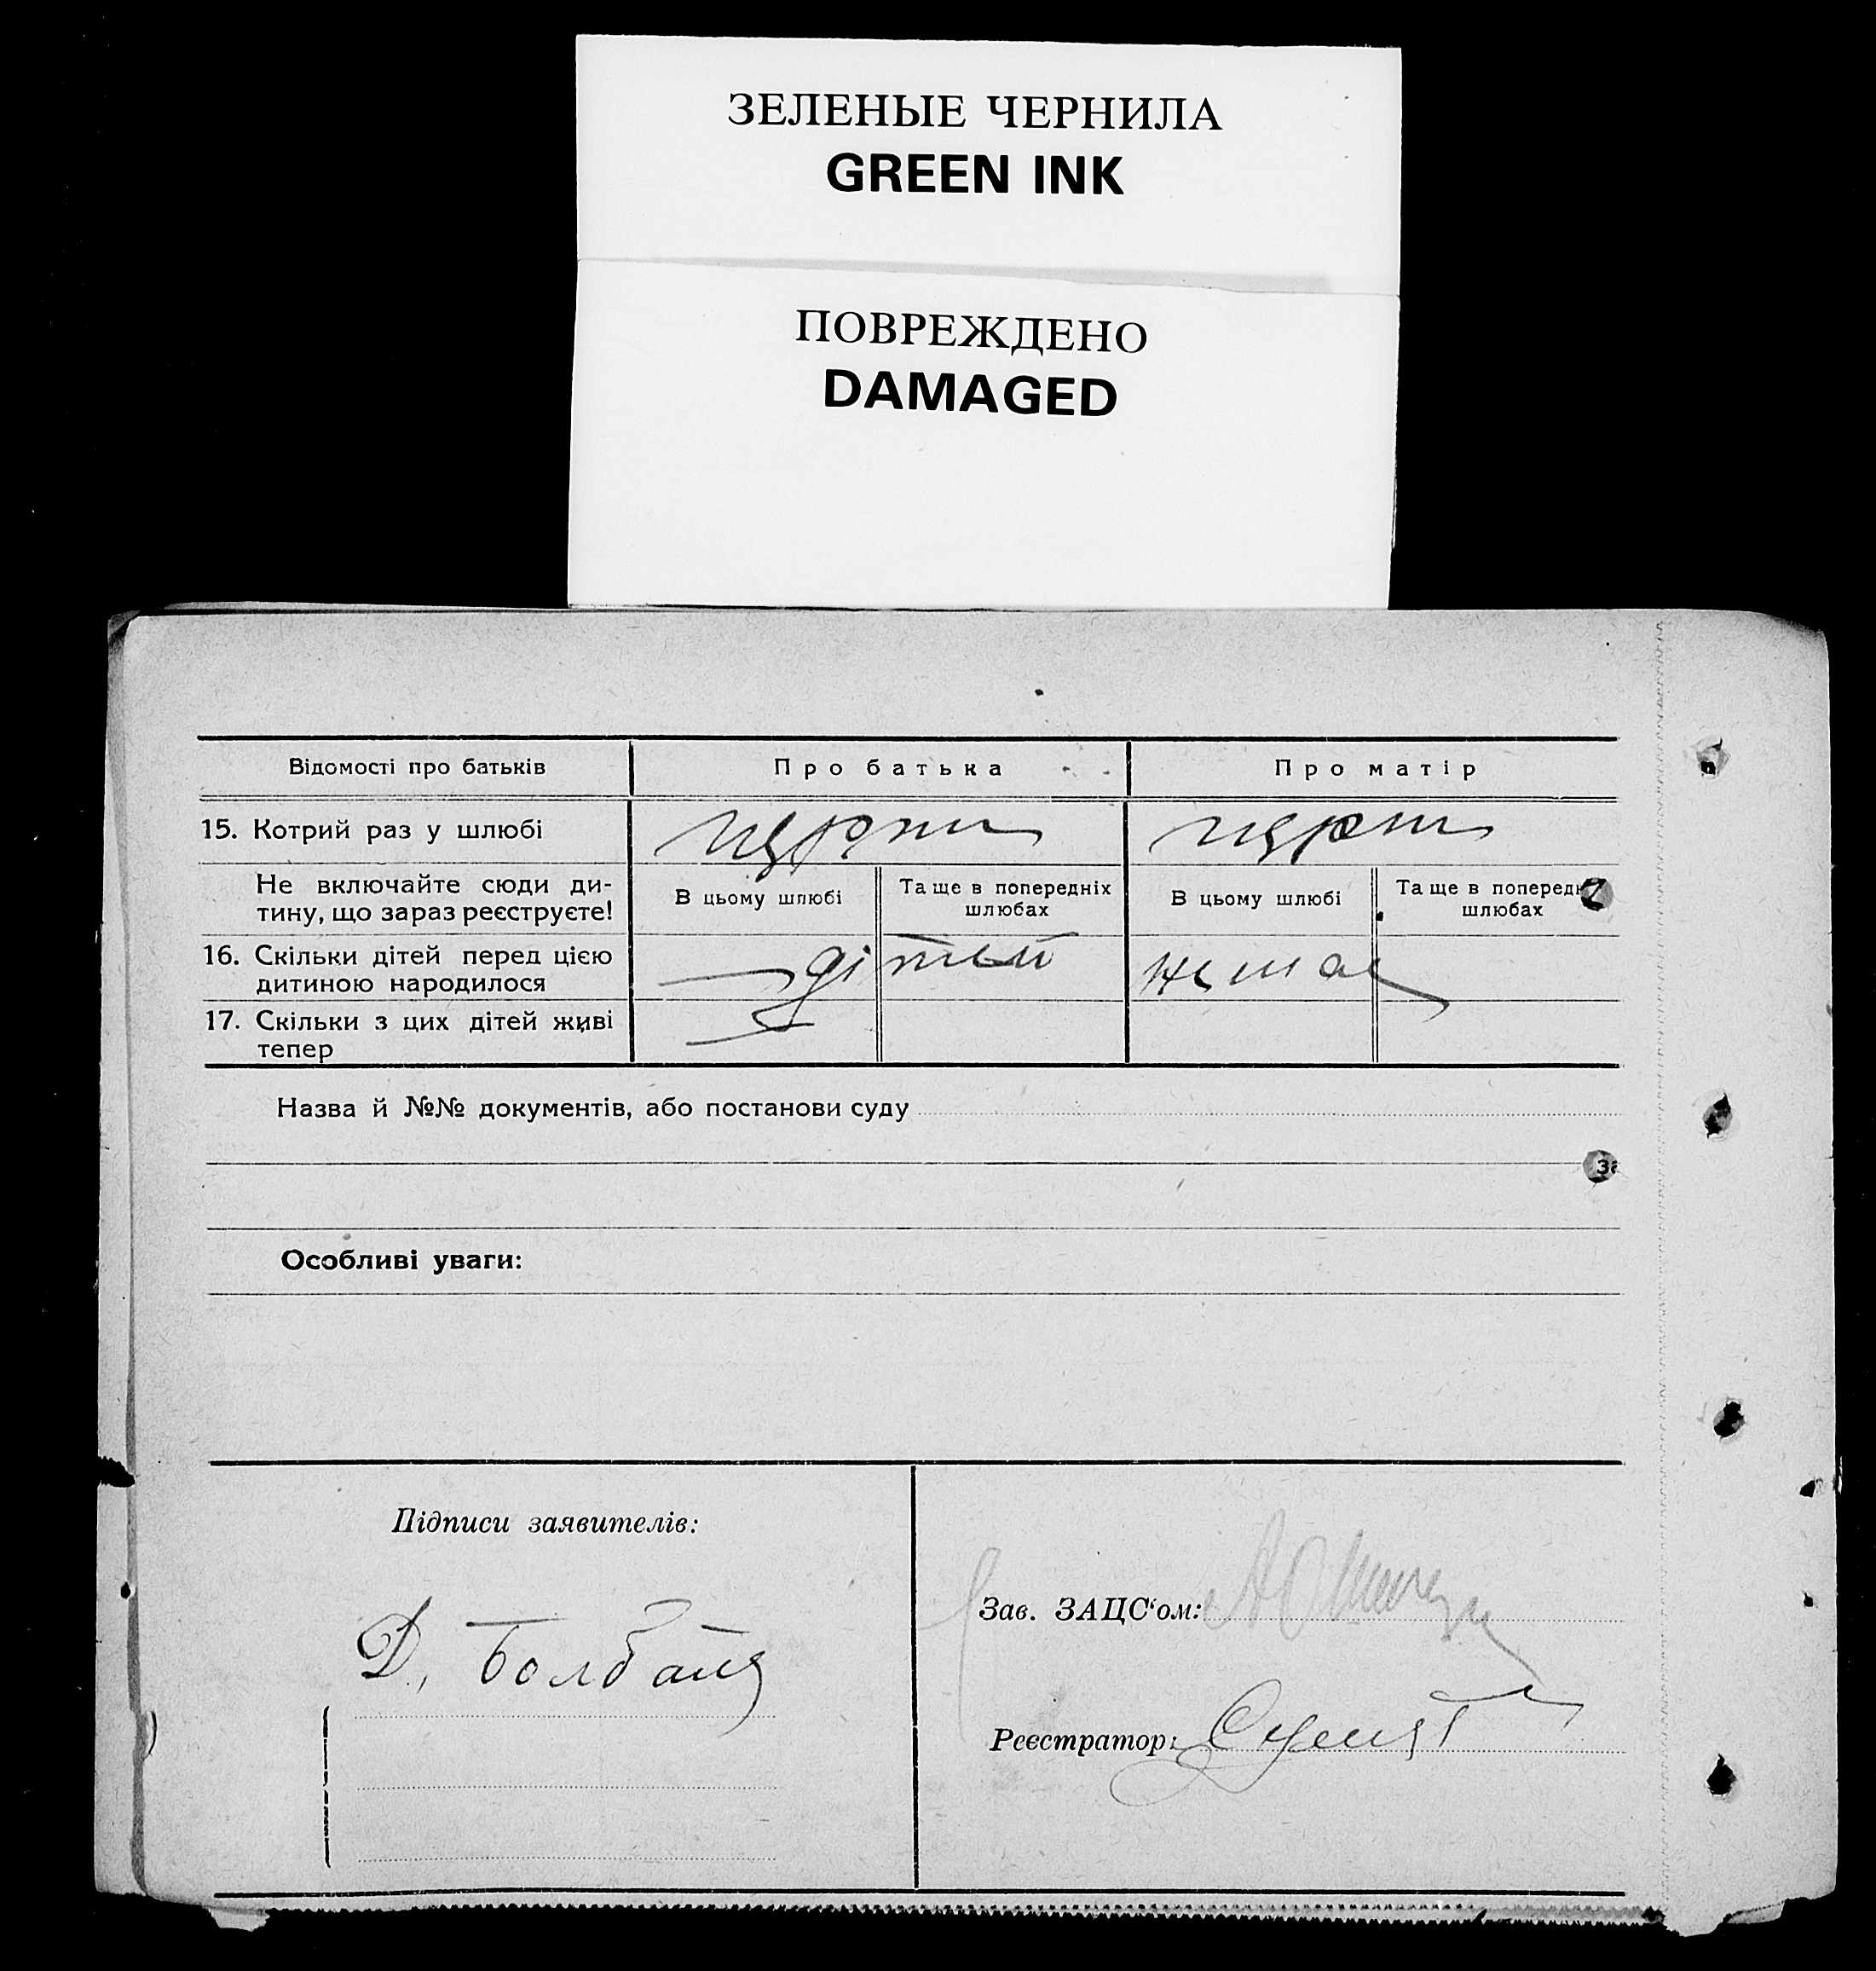 ЗЕЛЕНЫЕ ЧЕРНИЛА
GREEN INK
ПОВРЕЖДЕНО
DAMAGED
Відомості про батьків
Про батька
Про матір
15. Котрий раз у шлюбі
Не включайте сюди ди-
тину, що зараз реєструєте!
В цьому шлюбі
Та ще в попередніх
шлюбах
В цьому шлюбі
Та ще в поперед
шлюбах
16. Скільки дітей перед цією
дитиною народилося
дітей
немає
17. Скільки з цих дітей живі
тепер
Назва й №№ документів, або постанови суду
за
Особливі уваги:
Підписи заявителів:
Д. Болбат
Зав. ЗАЦС‘ом:
Реєстратор: